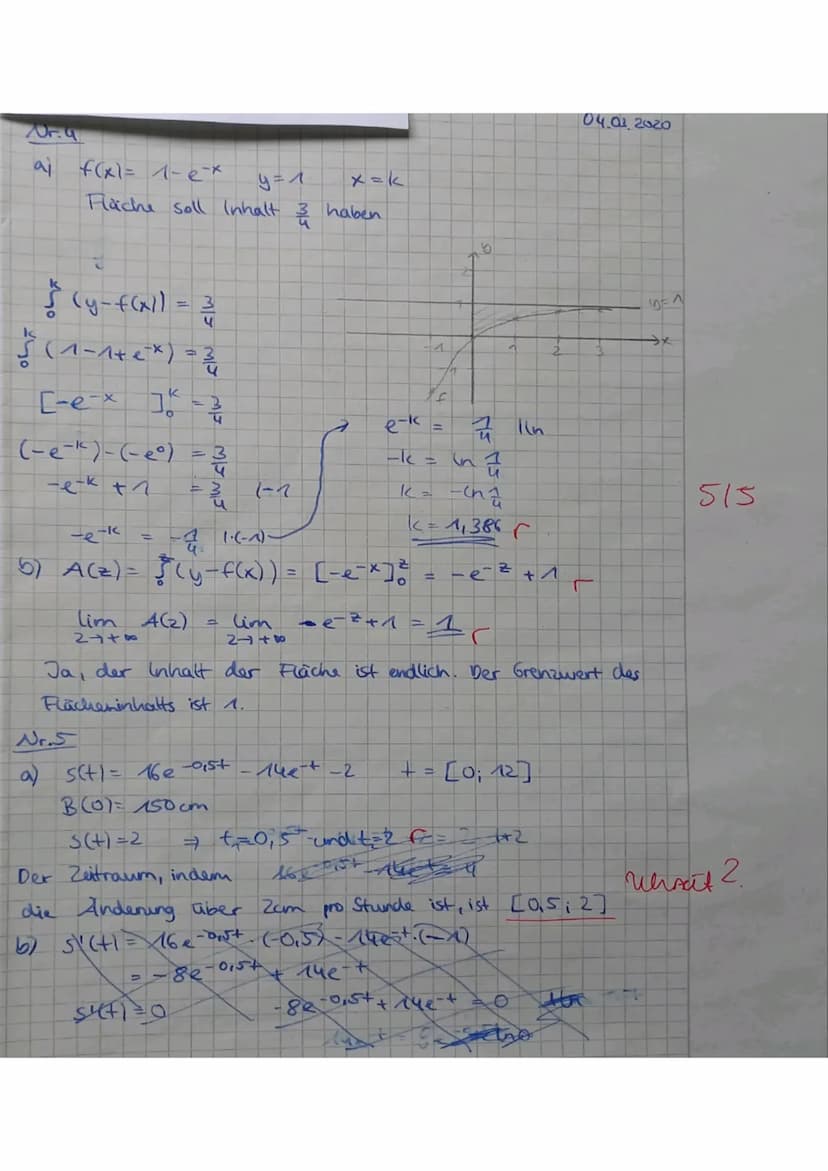 04.02.2020
Nr.4
a) f(x)= 1-e^-x y=1 x=k
Fläche soll Inhalt 3/4 haben
y
y=1
-1 1 2 3 x
-1
f
∫₀^k (y-f(x)) = 3/4
∫₀^k (1-1+e^-x) = 3/4
[-e^-x ]₀^k = 3/4
(-e^-k)-(-e^0) = 3/4
-e^-k +1 = 3/4 |-1
-e^-k = -1/4 |·(-1)
e^-k = 1/4 |ln
-k = ln 1/4
k = -ln 1/4
k = 1,386 r
5/5
b) A(z) = ∫₀^z (y-f(x)) = [-e^-x]₀^z = -e^-z +1 r
lim z→+∞ A(z) = lim z→+∞ -e^-z +1 = 1 r
Ja, der Inhalt der Fläche ist endlich. Der Grenzwert des
Flächeninhalts ist 1.
Nr.5
a) s(t)= 16e^-0,5t -14e^-t -2 t = [0; 12]
B(0)= 150cm
s(t)=2 ⇒ t₁=0,5 und t₂=2 r
Der Zeitraum, indem
die Änderung über 2cm pro Stunde ist, ist [0,5; 2]
2
b) s'(t)= 16e^-0,5t · (-0,5) - 14e^-t · (-1)
= -8e^-0,5t + 14e^-t
s'(t)=0 -8e^-0,5t + 14e^-t = 0